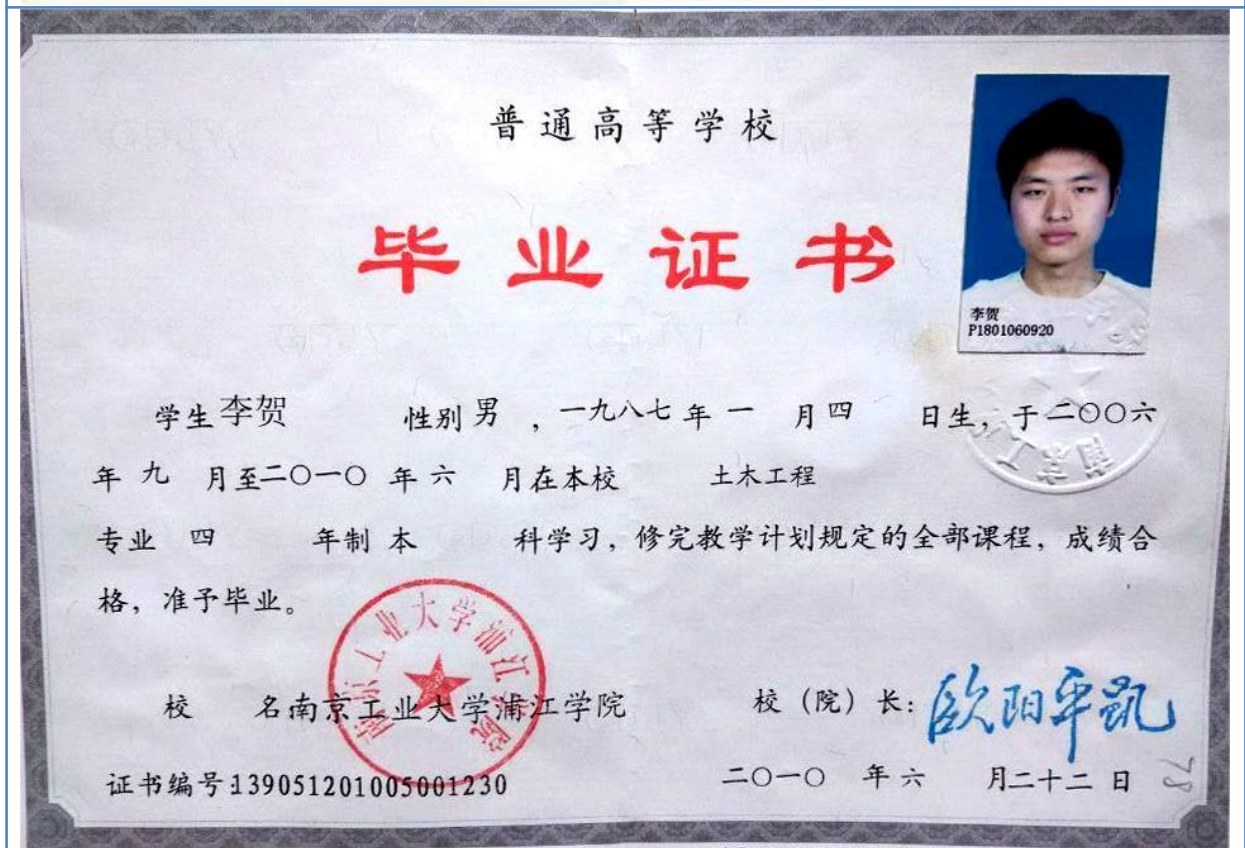 普通高等学校
毕业证书
李贺
P1801060920
学生 李贺 性别 男 , 一九八七 年 一 月 四 日生, 于 二〇〇六
年 九 月至 二〇一〇 年 六 月在本校 土木工程
专业 四 年制 本 科学习, 修完教学计划规定的全部课程, 成绩合
格, 准予毕业。
南京工业大学浦江学院
校 名 南京工业大学浦江学院 校 (院) 长: 欧阳平凯
证书编号:139051201005001230 二〇一〇 年 六 月二十二 日
78